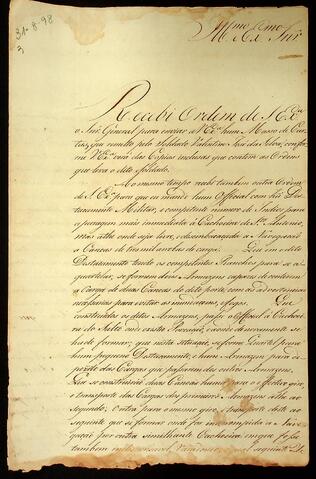 31-8-98
3
Illmo. e Exmo. Snr.
Recebi Ordem de S. Exa.
o Snr. General para enviar a V. Exa. hum Masso de Car-
tas, que remetto pelo Soldado Valentim Luis da Silva, confor-
me V. Exa. verá das Copias inclusas que contém as Ordens
que leva o dito Soldado.
Ao mesmo tempo recebi tambem outra Ordem
de S. Exa. para que eu mande hum Official com hu Des-
tacamento Militar, e competente numero de Indios para
a paragem mais immediata à Cachoeira de Sto. Antonio,
mas athe onde seja livre, e desembaraçada a Navegação
a Canoas de tres mil arrobas de carga. Que com o dito
Destacamento tendo os competentes Ranchos para se a-
quartelar, se formem dous Armazens capazes de conterem
a Carga de duas Canoas do dito porte, com as advertencias
necessarias para evitar as inundacoens, e fogos. Que
construidos os ditos Armazens, passe o Official á Cachoei-
ra do Salto onde existia Povoação, e aonde novamente se
hade formar; que nesta situação, se forme Quartel para
hum pequeno Destacamento, e hum Armazem para de-
posito das Cargas que passarem dos outros Armazens.
Que se construirão duas Canoas huma para o effectivo giro,
e transporte das Cargas dos primeiros Armazens athe ao
segundo, e outra para o mesmo giro, e transporte deste ao
seguinte que se formar onde for interrompida a Navi-
gação por outra similhante Cachoeira em que se faça
tambem